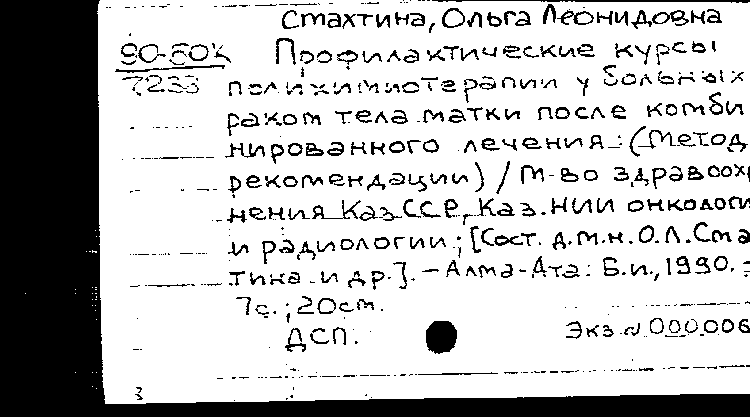 Стахтина, Ольга Леонидовна
90-60к Профилактические курсы
7233 полихимиотерапии у больных
раком тела матки после комби
нированного лечения: (Метод
рекомендации) / М-во здравоохр
нения КазССР, Каз. НИИ онкологи
и радиологии; [Сост. д.м.н. О.Л. Ста
тина и др.]. – Алма-Ата: Б.и., 1990. –
7с.; 20см.
ДСП. Экз N 000006
3